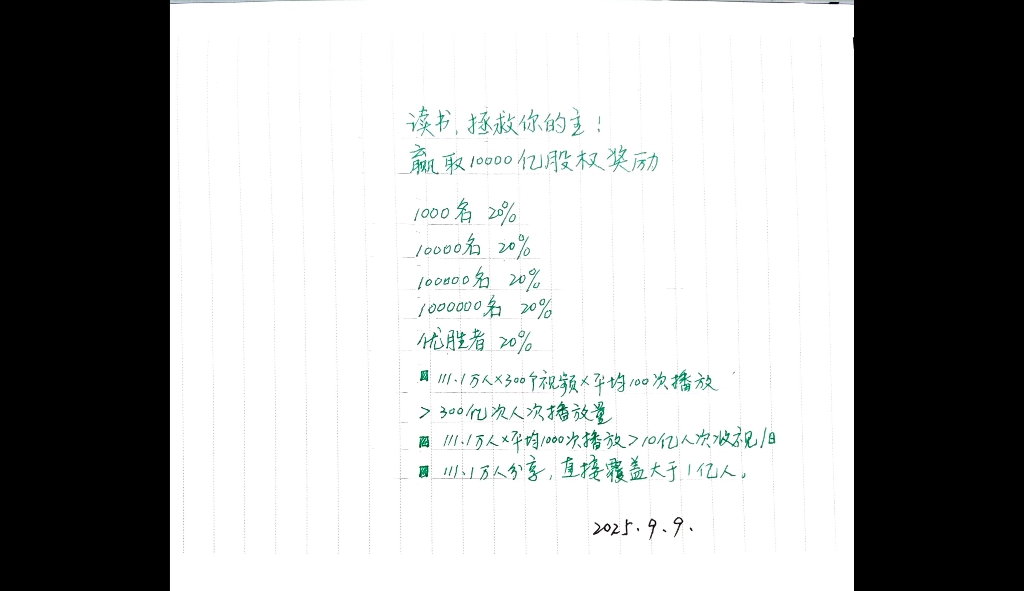 读书,拯救你的主!
赢取10000亿股权奖励
1000名 20%
10000名 20%
100000名 20%
1000000名 20%
优胜者 20%
111.1万人×300个视频×平均100次播放
>300亿次人次播放量
111.1万人×平均1000次播放>10亿人次收视/日
111.1万人分享,直接覆盖大于1亿人。
2025.9.9.